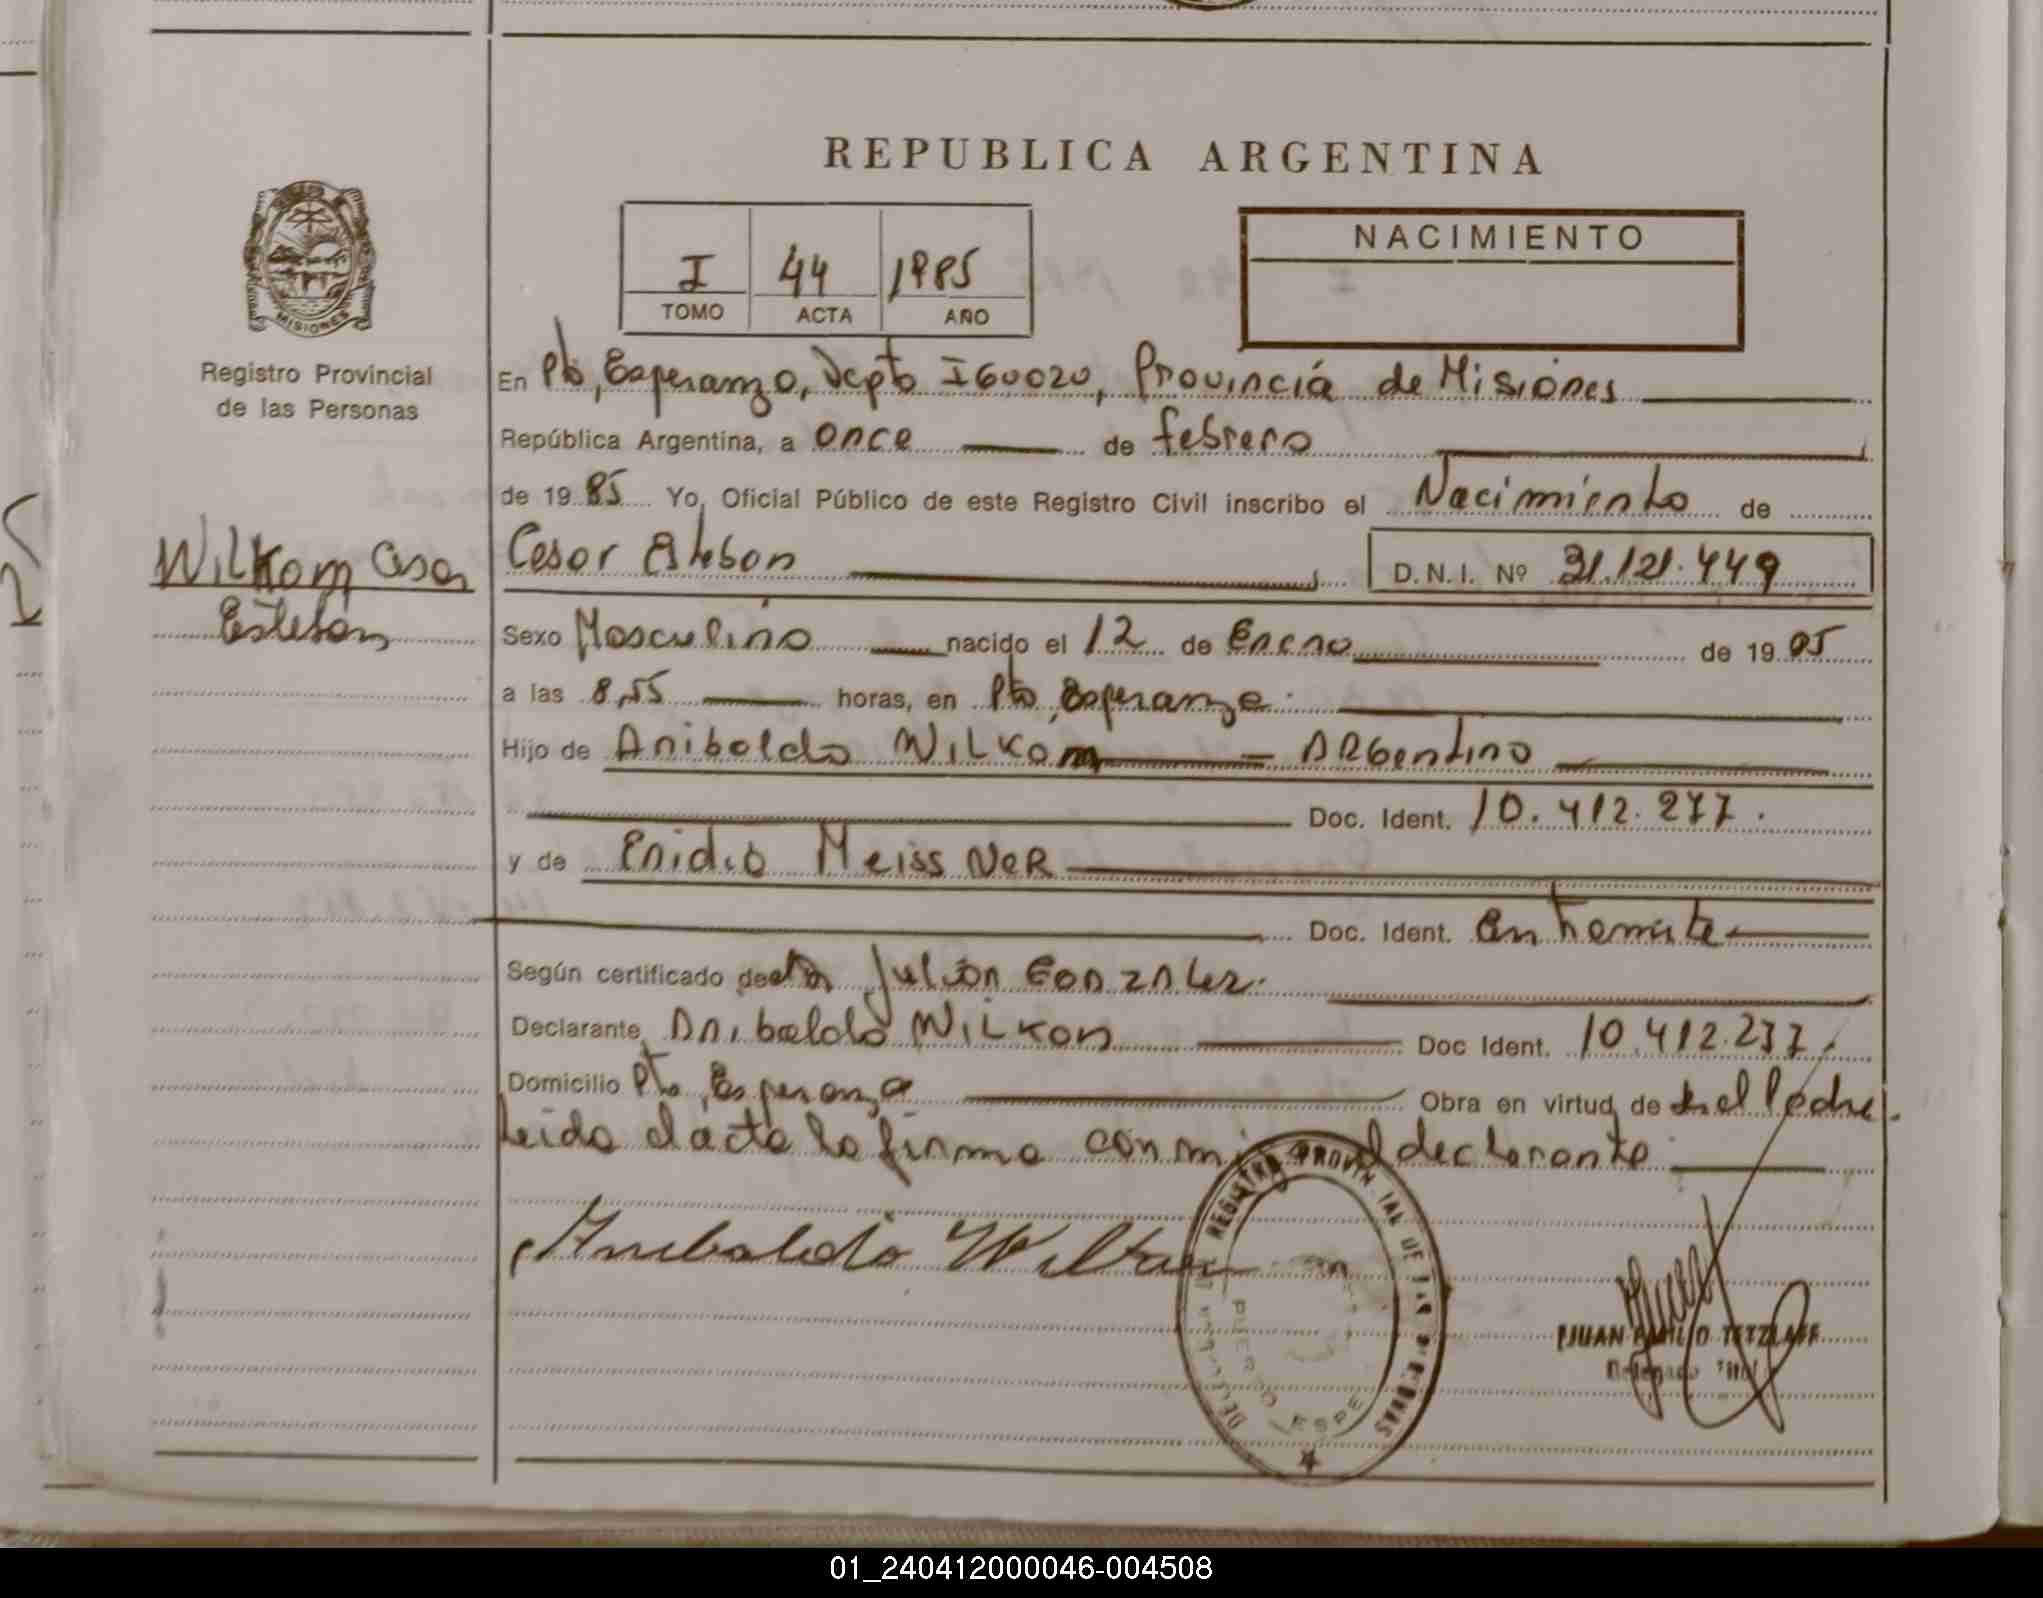 REPUBLICA ARGENTINA
I 44 1985
TOMO ACTA AÑO
NACIMIENTO
MISIONES
Registro Provincial
de las Personas
Wilkom Cesar
Esteban
En Pto, Esperanza, Depto Iguazu, Provincia de Misiones
República Argentina, a once de febrero
de 1985 Yo, Oficial Público de este Registro Civil inscribo el Nacimiento de
Cesar Esteban D.N.I. Nº 31.121.449
Sexo Masculino nacido el 12 de Enero de 1985
a las 8,55 horas, en Pto, Esperanza.
Hijo de Anibaldo Wilkom Argentino
Doc. Ident. 10.412.277.
y de Enidio Meissner
Doc. Ident. en tramite
Según certificado de Julian Gonzalez.
Declarante Anibaldo Wilkom Doc Ident. 10.412.277.
Domicilio Pto, Esperanza Obra en virtud de el Padre.
Leida el acta la firma con mi el declarante
Anibaldo Wilkom
REGISTRO PROVINCIAL DE LAS PERSONAS
PUERTO ESPE
JUAN TETZLAFF
01_240412000046-004508